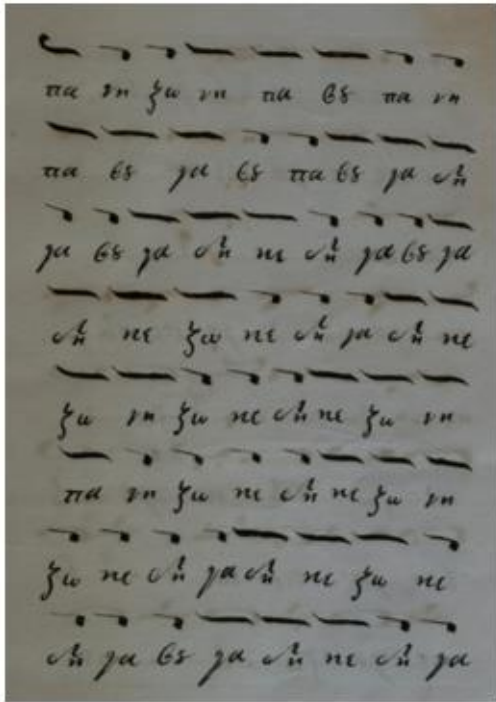 πα νη ζω νη πα βȣ πα νη
πα βȣ γα βȣ πα βȣ γα δι
γα βȣ γα δι κε δι γα βȣ γα
δι κε ζω κε δι γα δι κε
ζω νη ζω κε δι κε ζω νη
πα νη ζω κε δι κε ζω νη
ζω κε δι γα δι κε ζω κε
δι γα βȣ γα δι κε δι γα